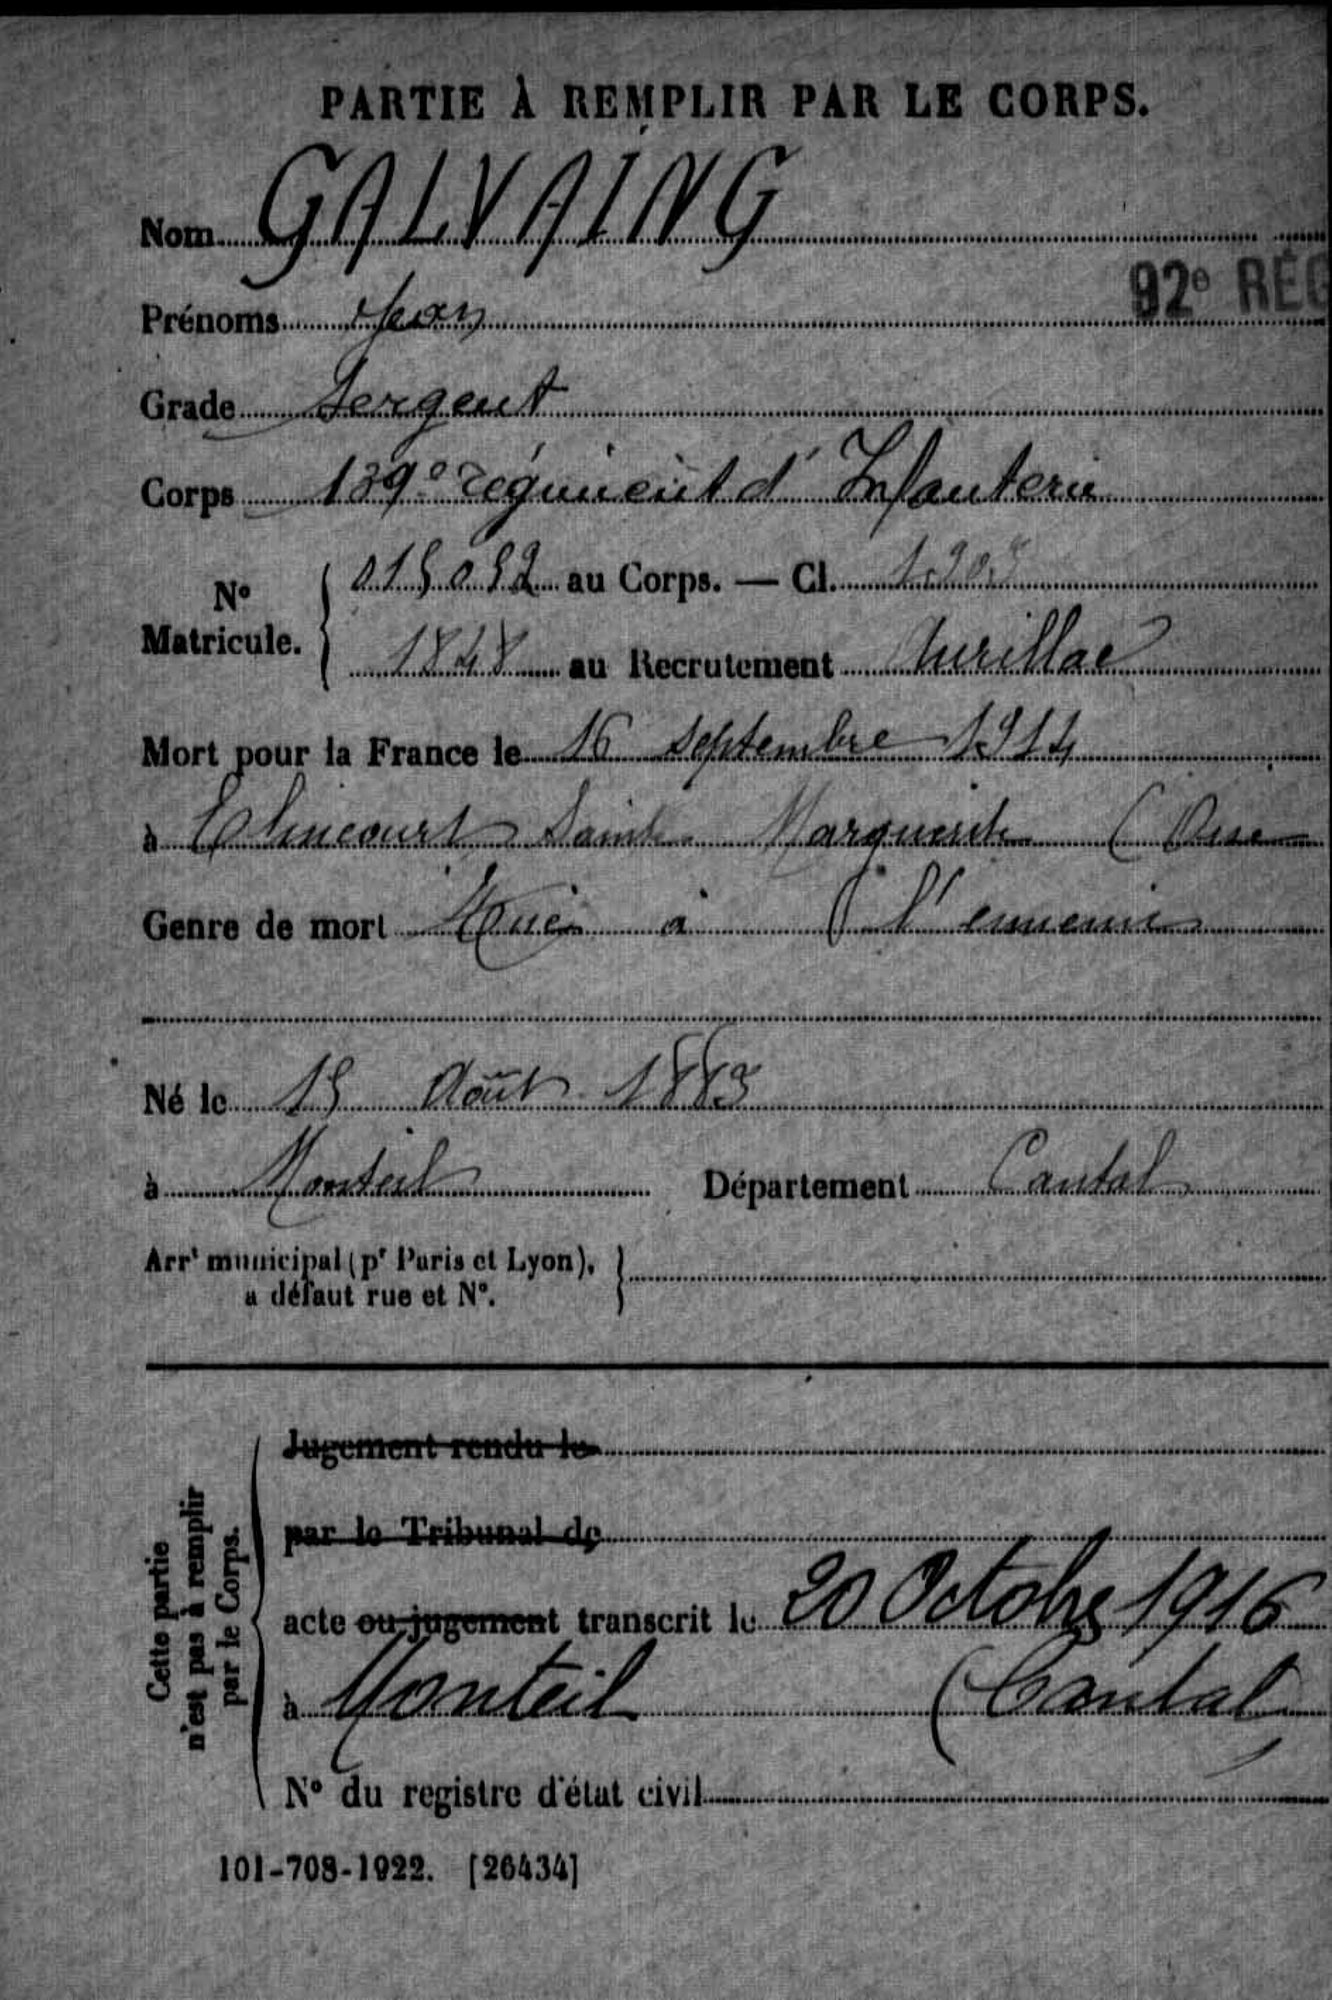 PARTIE À REMPLIR PAR LE CORPS.
Nom GALVAING
92e RÉG
Prénoms Jean
Grade Sergent
Corps 139e régiment d'Infanterie
No Matricule. 015092 au Corps. — Cl. 1903
1848 au Recrutement Aurillac
Mort pour la France le 16 septembre 1914
à Elincourt Sainte Marguerite (Oise
Genre de mort Tué à l'ennemi
Né le 15 Août 1883
à Monteil Département Cantal
Arrt municipal (pr Paris et Lyon), à défaut rue et No.
Cette partie n'est pas à remplir par le Corps.
Jugement rendu le
par le Tribunal de
acte ou jugement transcrit le 20 Octobre 1916
à Monteil (Cantal)
No du registre d'état civil
101-708-1922. [26434]